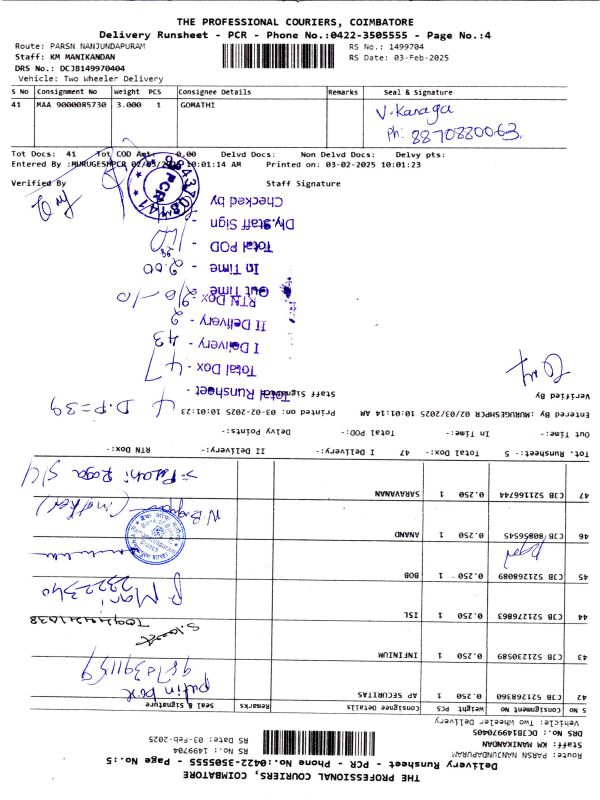 THE PROFESSIONAL COURIERS, COIMBATORE
Delivery Runsheet - PCR - Phone No.:0422-3505555 - Page No.:4
Route: PARSN NANJUNDAPURAM RS No.: 1499704
Staff: KM MANIKANDAN RS Date: 03-Feb-2025
DRS No.: DCJB149970404
Vehicle: Two Wheeler Delivery
S No Consignment No Weight PCS Consignee Details Remarks Seal & Signature
41 MAA 9000085730 3.000 1 GOMATHI
V. Kanaga
Ph: 8870880063
Tot Docs: 41 Tot COD Amt. 0.00 Delvd Docs: Non Delvd Docs: Delvy pts:
Entered By :MURUGESHPCR 02/03/2025 10:01:14 AM Printed on: 03-02-2025 10:01:23
Verified By Staff Signature
PCR
THE PROFESSIONAL COURIERS, COIMBATORE
Delivery Runsheet - PCR - Phone No.:0422-3505555 - Page No.:5
Route: PARSN NANJUNDAPURAM RS No.: 1499704
Staff: KM MANIKANDAN RS Date: 03-Feb-2025
DRS No.: DCJB149970405
Vehicle: Two Wheeler Delivery
S No Consignment No Weight PCS Consignee Details Remarks Seal & Signature
42 CJB 521268360 0.250 1 AP SECURITAS
43 CJB 521230589 0.250 1 INFINIUM
44 CJB 521276863 0.250 1 ISL
45 CJB 521268089 0.250 1 BOB
46 CJB 808565545 0.250 1 ANAND
47 CJB 521166744 0.250 1 SARAVANAN
Tot. Runsheet:- 5 Total Dox:- 47 I Delivery:- II Delivery:- RTN Dox:-
Out Time:- In Time:- Total POD:- Delvy Points:-
Entered By :MURUGESHPCR 02/03/2025 10:01:14 AM Printed on: 03-02-2025 10:01:23
D.P=39
Verified By Staff Signature
Total Runsheet -
Total Dox - 47
I Delivery - 43
II Delivery - 2
RTN Dox - 2
Out Time - 10-10
In Time - 2.00
Total POD -
Dly.Staff Sign
Checked by